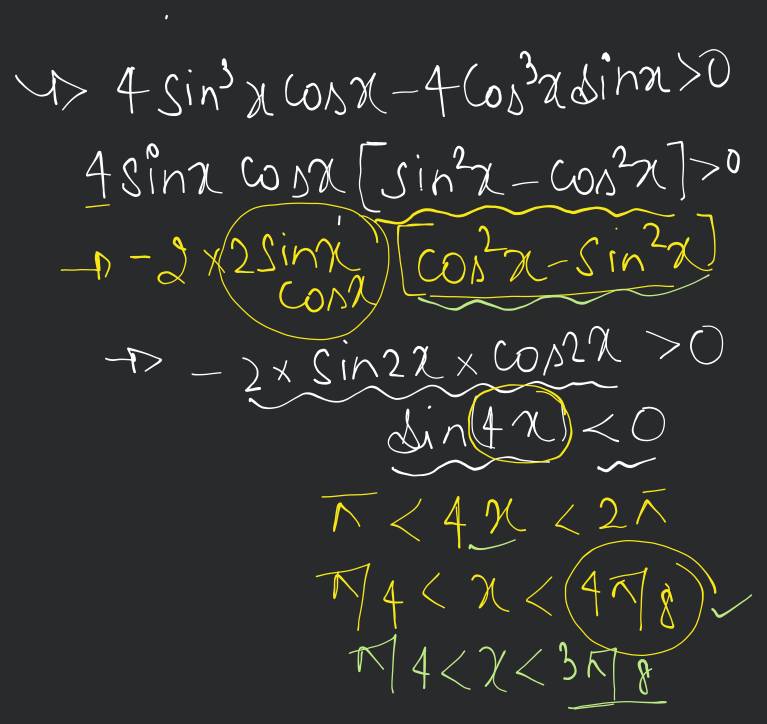 → 4 sin³x cosx - 4 cos³x sinx > 0
4 sinx cosx [sin²x - cos²x] > 0
→ -2 × 2 sinx cosx [cos²x - sin²x]
→ -2 × sin2x × cos2x > 0
sin(4x) < 0
π < 4x < 2π
π/4 < x < 4π/8 ✓
π/4 < x < 3π/8